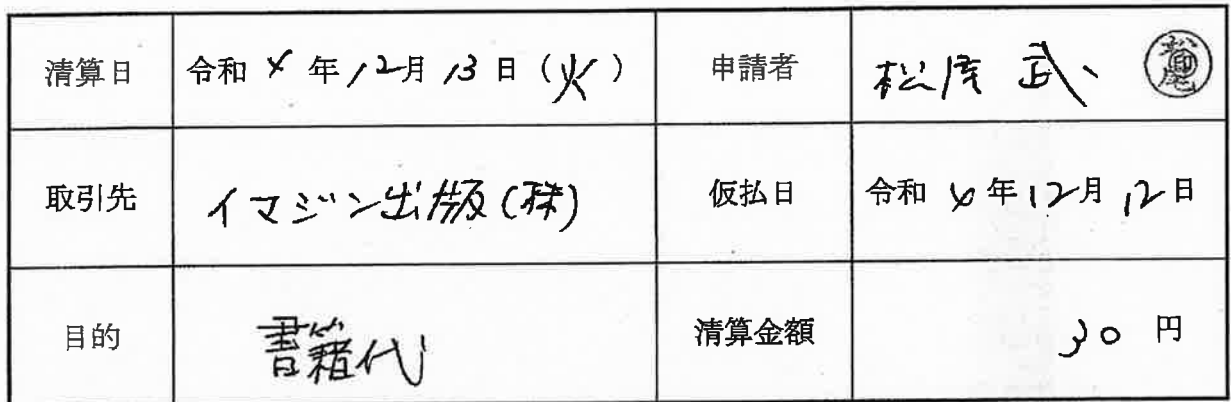 清算日 令和 4 年 12月 13 日 (火) 申請者 松尾 武 松尾印
取引先 イマジン出版(株) 仮払日 令和 4 年 12月 12日
目的 書籍代 清算金額 30 円